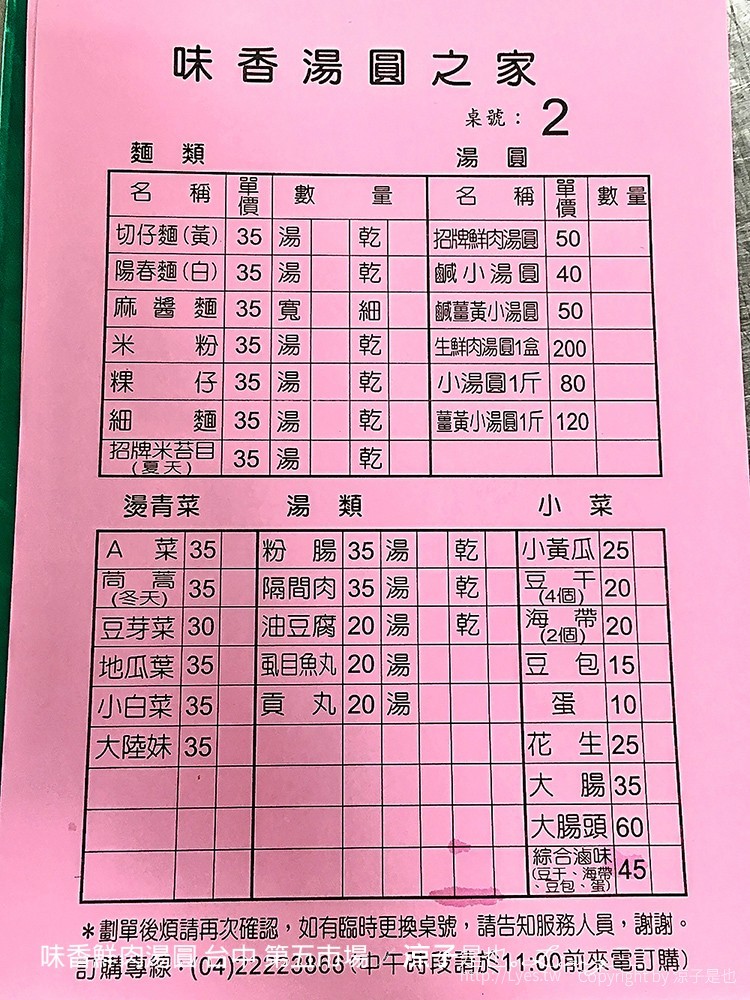 味香湯圓之家
桌號： 2
麵類 湯圓
名稱 單價 數量 名稱 單價 數量
切仔麵(黃) 35 湯 乾 招牌鮮肉湯圓 50
陽春麵(白) 35 湯 乾 鹹小湯圓 40
麻醬麵 35 寬 細 鹹薑黃小湯圓 50
米粉 35 湯 乾 生鮮肉湯圓1盒 200
粿仔 35 湯 乾 小湯圓1斤 80
細麵 35 湯 乾 薑黃小湯圓1斤 120
招牌米苔目 35 湯 乾
(夏天)
燙青菜 湯類 小菜
A菜 35 粉腸 35 湯 乾 小黃瓜 25
茼蒿 35 隔間肉 35 湯 乾 豆干 20
(冬天) (4個)
豆芽菜 30 油豆腐 20 湯 乾 海帶 20
(2個)
地瓜葉 35 虱目魚丸 20 湯 豆包 15
小白菜 35 貢丸 20 湯 蛋 10
大陸妹 35 花生 25
大腸 35
大腸頭 60
綜合滷味 45
(豆干、海帶
、豆包、蛋)
＊劃單後煩請再次確認，如有臨時更換桌號，請告知服務人員，謝謝。
味香鮮肉湯圓 台中 第五市場 涼子是也
訂購專線：(04)22223866 (中午時段請於11:00前來電訂購)
http://Lyes.tw Copyright by 涼子是也